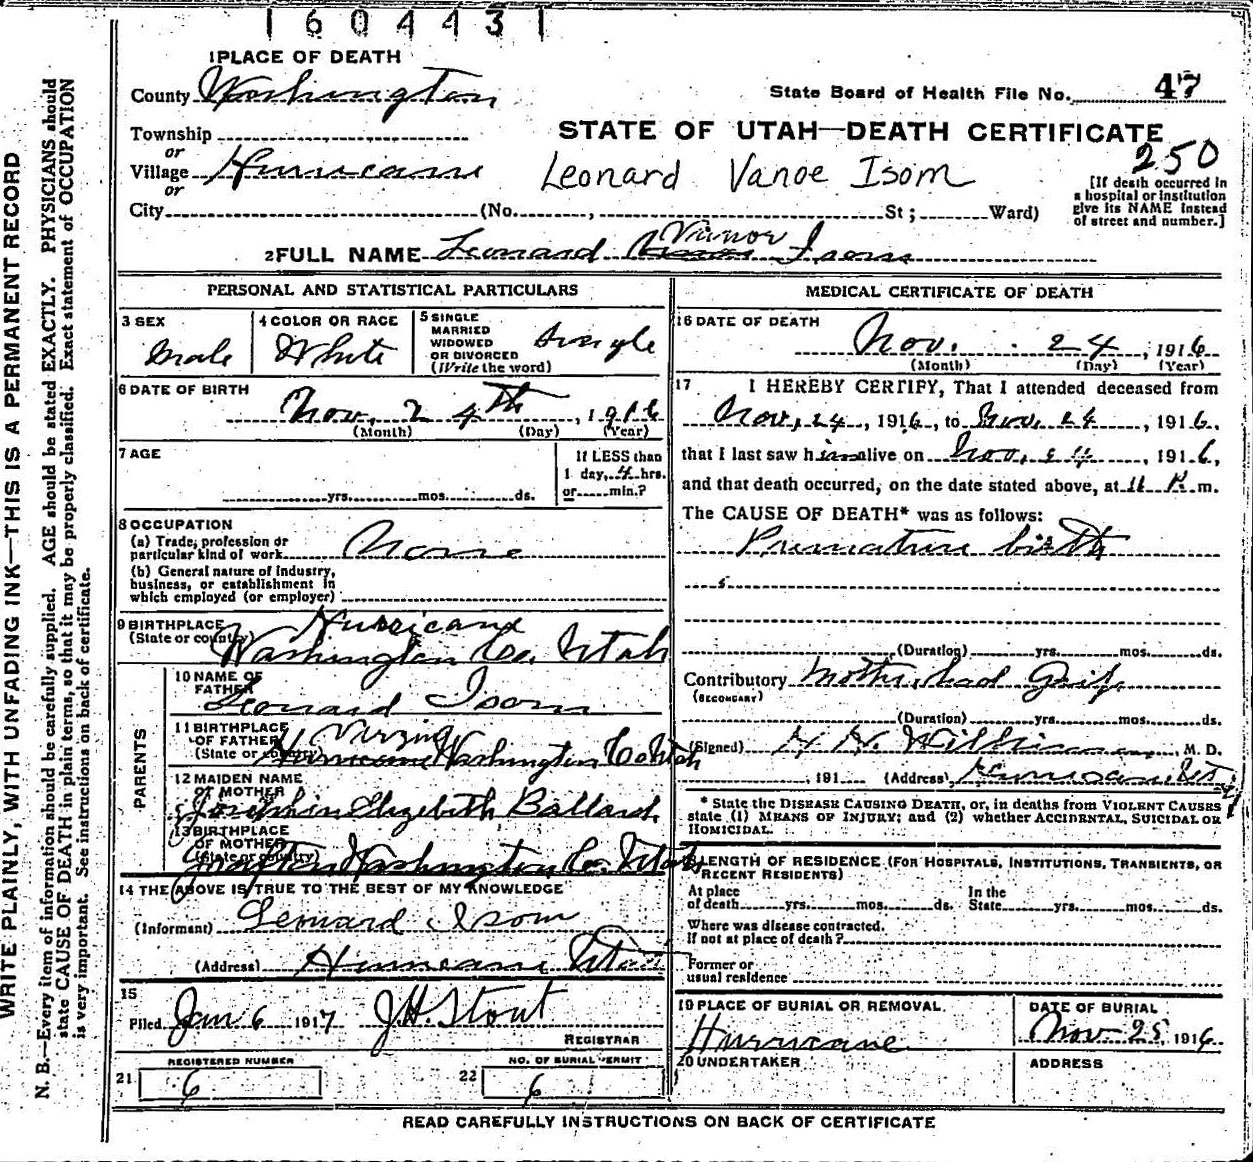 1604431
1 PLACE OF DEATH
County Washington
State Board of Health File No. 47
Township
STATE OF UTAH—DEATH CERTIFICATE
or
250
Village Hurricane
Leonard Vanoe Isom
or
[If death occurred in
a hospital or institution
give its NAME instead
of street and number.]
City (No. , St; Ward)
2 FULL NAME Leonard Isom
PERSONAL AND STATISTICAL PARTICULARS
3 SEX
Male
4 COLOR OR RACE
White
5 SINGLE
MARRIED
WIDOWED
OR DIVORCED
(Write the word)
Single
6 DATE OF BIRTH
Nov. 24th, 1916
(Month) (Day) (Year)
7 AGE
yrs. mos. ds.
If LESS than
1 day, 4 hrs.
or min.?
8 OCCUPATION
(a) Trade, profession or
particular kind of work None
(b) General nature of industry,
business, or establishment in
which employed (or employer)
9 BIRTHPLACE
(State or country)
Hurricane
Washington Co. Utah
PARENTS
10 NAME OF
FATHER
Leonard Isom
11 BIRTHPLACE
OF FATHER
(State or country)
Hurricane Washington Co Utah
12 MAIDEN NAME
OF MOTHER
Elizabeth Ballard
13 BIRTHPLACE
OF MOTHER
(State or country)
Grafton Washington Co. Utah
14 THE ABOVE IS TRUE TO THE BEST OF MY KNOWLEDGE
(Informant) Leonard Isom
(Address) Hurricane Utah
15
Filed Jan 6 1917 J.H. Stout
REGISTRAR
REGISTERED NUMBER
21 6
NO. OF BURIAL PERMIT
22 6
MEDICAL CERTIFICATE OF DEATH
16 DATE OF DEATH
Nov. 24, 1916
(Month) (Day) (Year)
17 I HEREBY CERTIFY, That I attended deceased from
Nov. 24, 1916, to Nov. 24, 1916,
that I last saw him alive on Nov. 24, 1916,
and that death occurred, on the date stated above, at 11 P. m.
The CAUSE OF DEATH* was as follows:
Premature birth
(Duration) yrs. mos. ds.
Contributory Mother had Grip
(SECONDARY)
(Duration) yrs. mos. ds.
(Signed) M. D.
, 191 (Address) Hurricane Ut
* State the DISEASE CAUSING DEATH, or, in deaths from VIOLENT CAUSES
state (1) MEANS OF INJURY; and (2) whether ACCIDENTAL, SUICIDAL OR
HOMICIDAL.
LENGTH OF RESIDENCE (FOR HOSPITALS, INSTITUTIONS, TRANSIENTS, OR
RECENT RESIDENTS)
At place
of death yrs. mos. ds.
In the
State yrs. mos. ds.
Where was disease contracted.
If not at place of death?
Former or
usual residence
19 PLACE OF BURIAL OR REMOVAL
Hurricane
DATE OF BURIAL
Nov. 25, 1916
20 UNDERTAKER
ADDRESS
READ CAREFULLY INSTRUCTIONS ON BACK OF CERTIFICATE
WRITE PLAINLY, WITH UNFADING INK—THIS IS A PERMANENT RECORD
N. B.—Every item of information should be carefully supplied. AGE should be stated EXACTLY. PHYSICIANS should
state CAUSE OF DEATH in plain terms, so that it may be properly classified. Exact statement of OCCUPATION
is very important. See instructions on back of certificate.